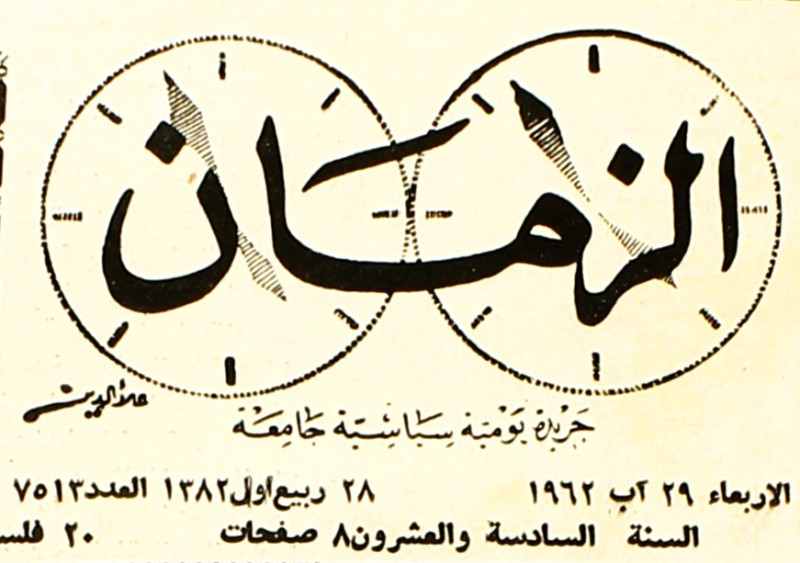 الزمان
علاء الدين
جريدة يومية سياسية جامعة
الاربعاء ٢٩ آب ١٩٦٢ ٢٨ ربيع اول ١٣٨٢ العدد ٧٥١٣
السنة السادسة والعشرون ٨ صفحات ٢٠ فلسا